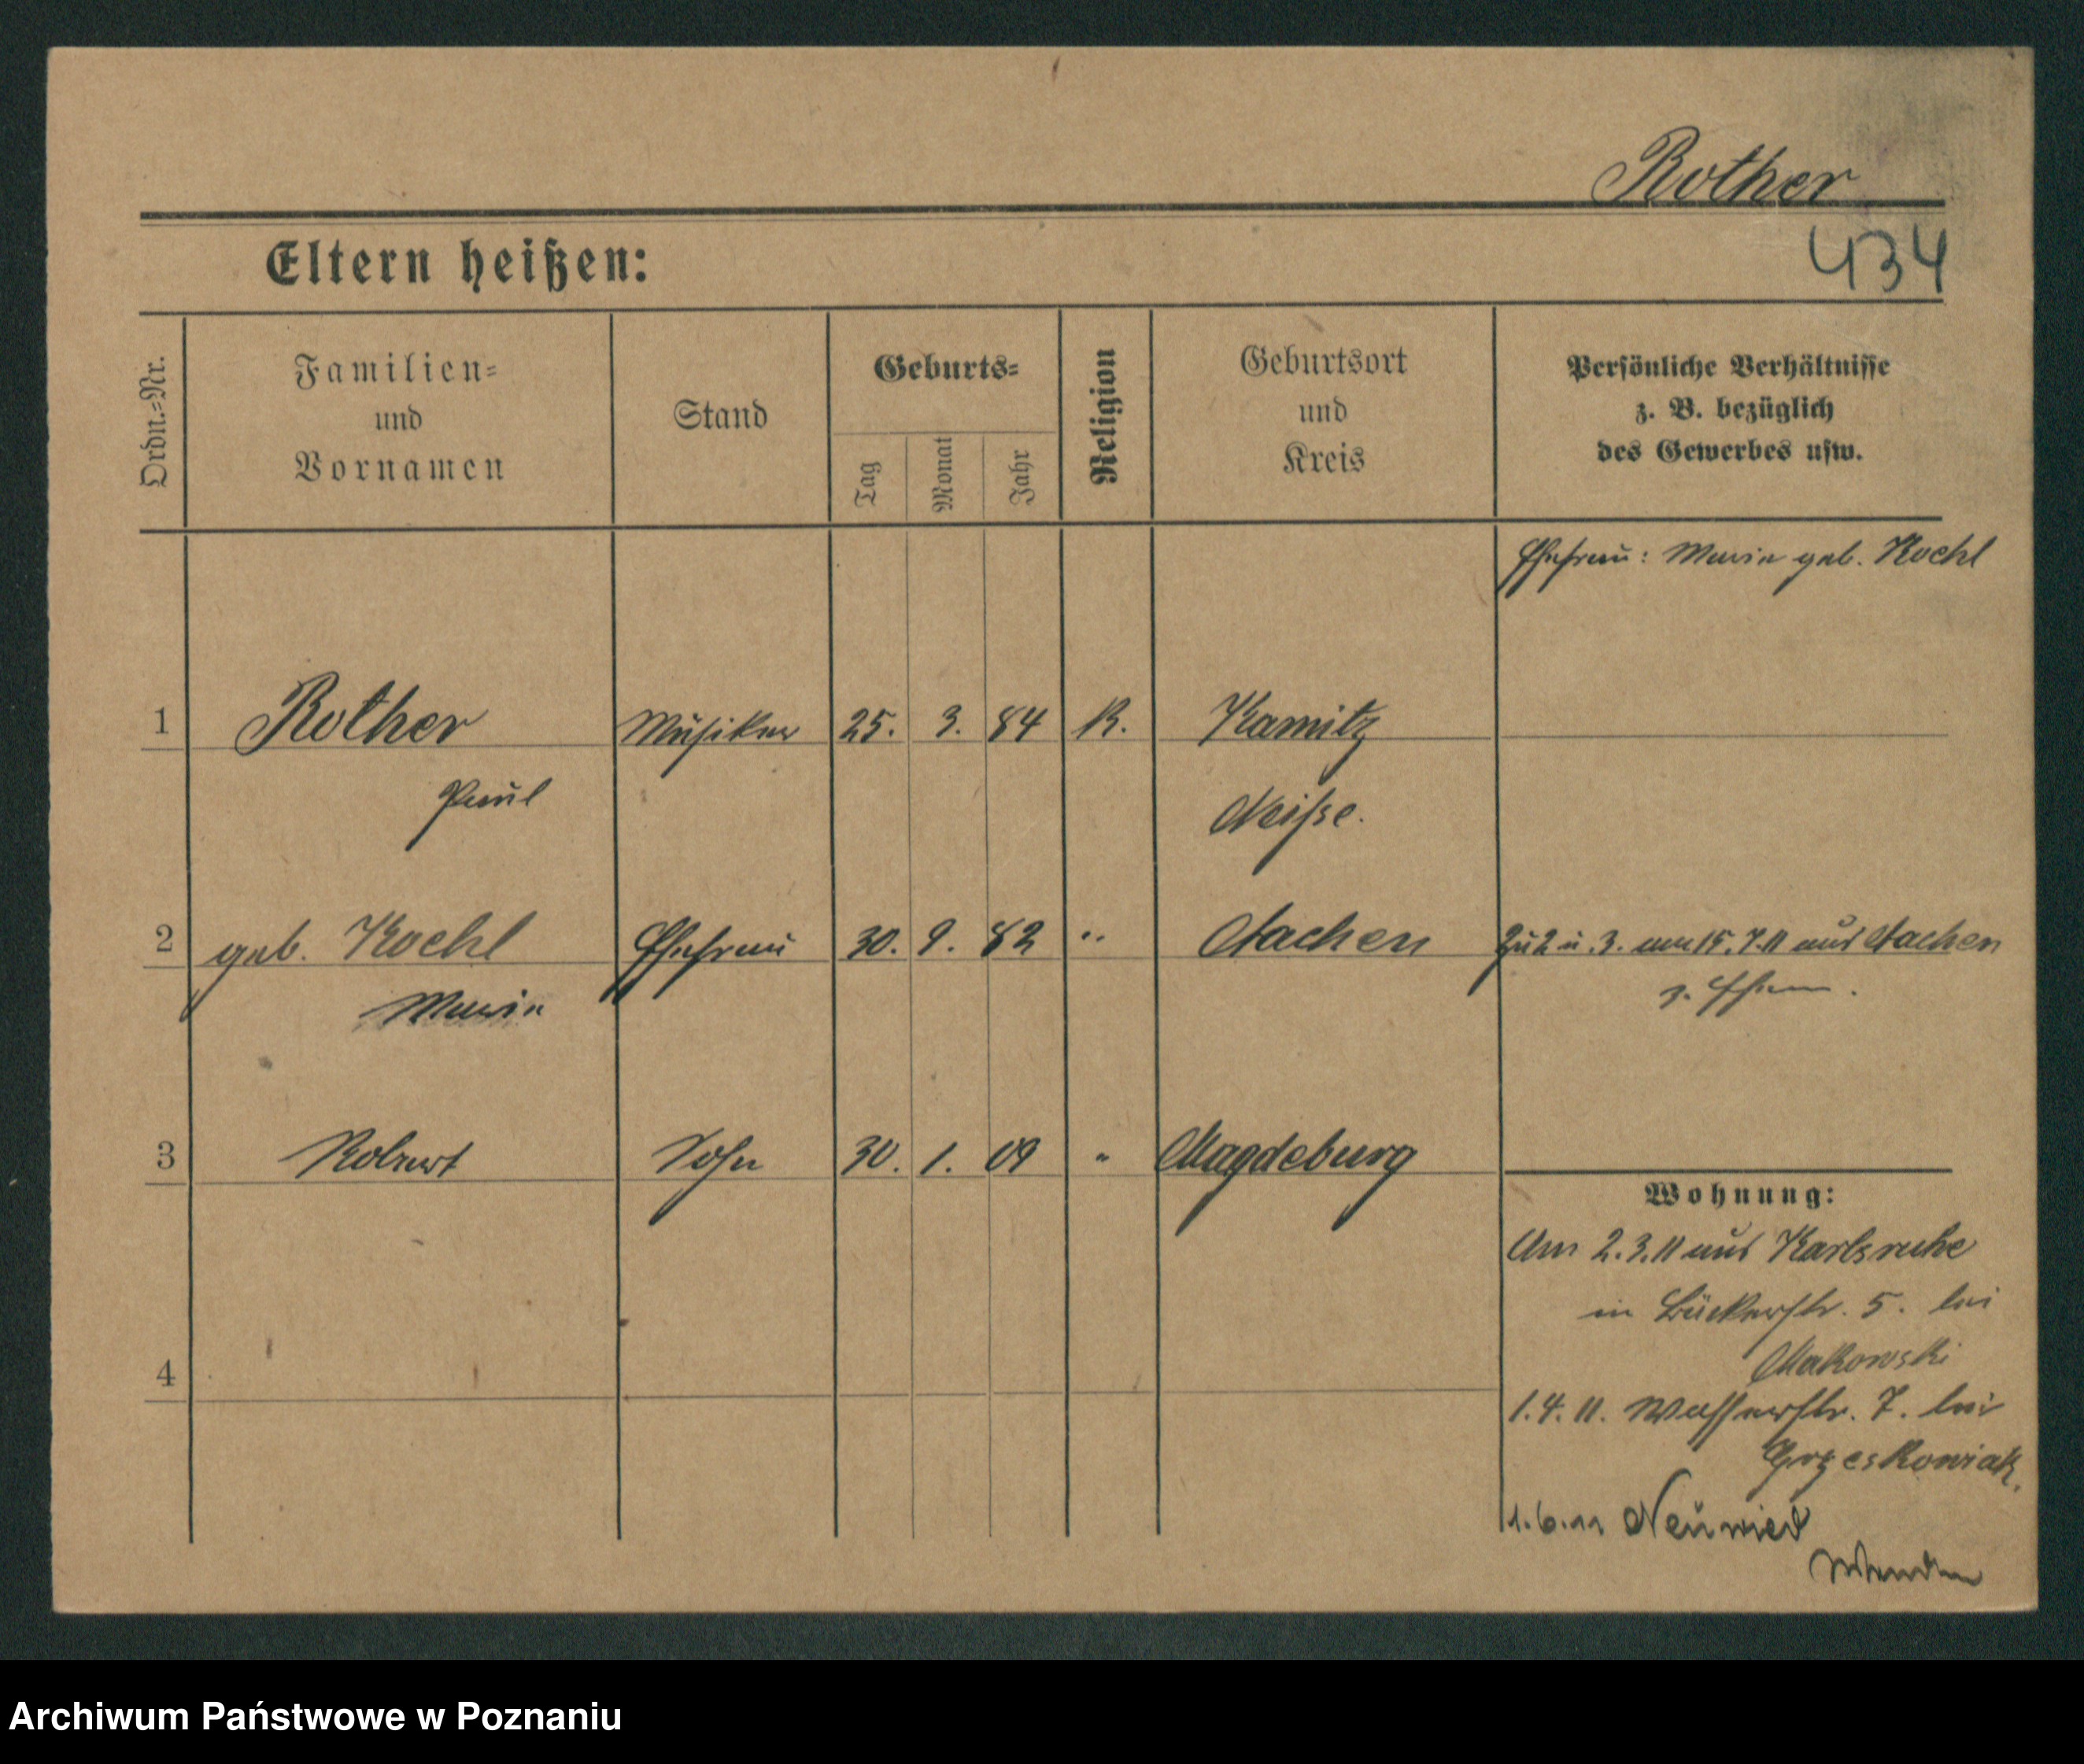 Rother
434
Eltern heißen:
Ordn.=Nr.
Familien=
und
Vornamen
Stand
Geburts=
Tag
Monat
Jahr
Religion
Geburtsort
und
Kreis
Persönliche Verhältnisse
z. B. bezüglich
des Gewerbes usw.
Ehefrau: Maria geb. Koehl
1 Rother Musiker 25. 3. 84 K. Kamitz
Paul Neisse.
2 geb. Koehl Ehefrau 30. 9. 82 " Aachen Zu 2 u. 3. am 15.7.11 aus Aachen
Maria z. Ehem.
3 Robert Sohn 30. 1. 09 " Magdeburg
Wohnung:
Am 2.3.11 aus Karlsruhe
in Bäckerstr. 5. bei
Makowski
4
1.4.11. Wasserstr. 7. bei
Grzeskowiak.
1.6.11 Neuwied